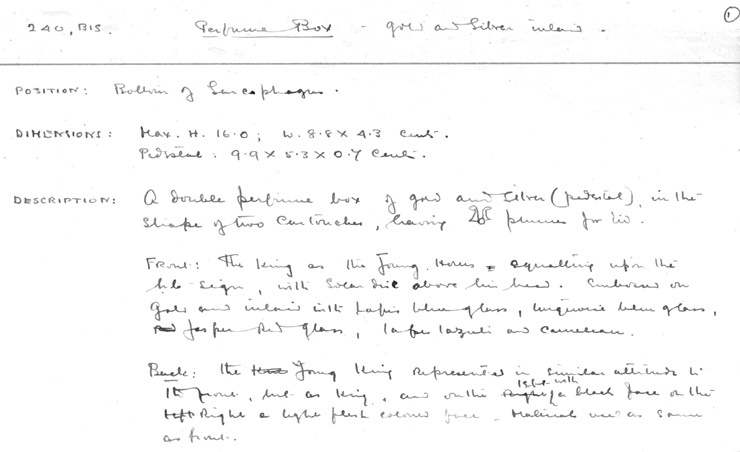 240, BIS. Perfume Box - gold and Silver inlaid. 1
POSITION: Bottom of Sarcophagus.
DIMENSIONS: Max. H. 16.0; W. 8.8 X 4.3 cents.
Pedestal: 9.9 X 5.3 X 0.7 cents.
DESCRIPTION: A double perfume box of gold and silver (pedestal), in the
shape of two Cartouches, having plumes for lid.
Front: The King as the Young Horus squatting upon the
hb-sign, with Solar disc above his head. Embossed on
Gold and inlaid with lapis blue glass, turquoise blue glass,
jasper Red glass, lapis lazuli and carnelian.
Back: The Young King represented in similar attitude to
the front, but as King, and on the left with a black face on the
Right a light flesh colored face - Materials used as same
as front.